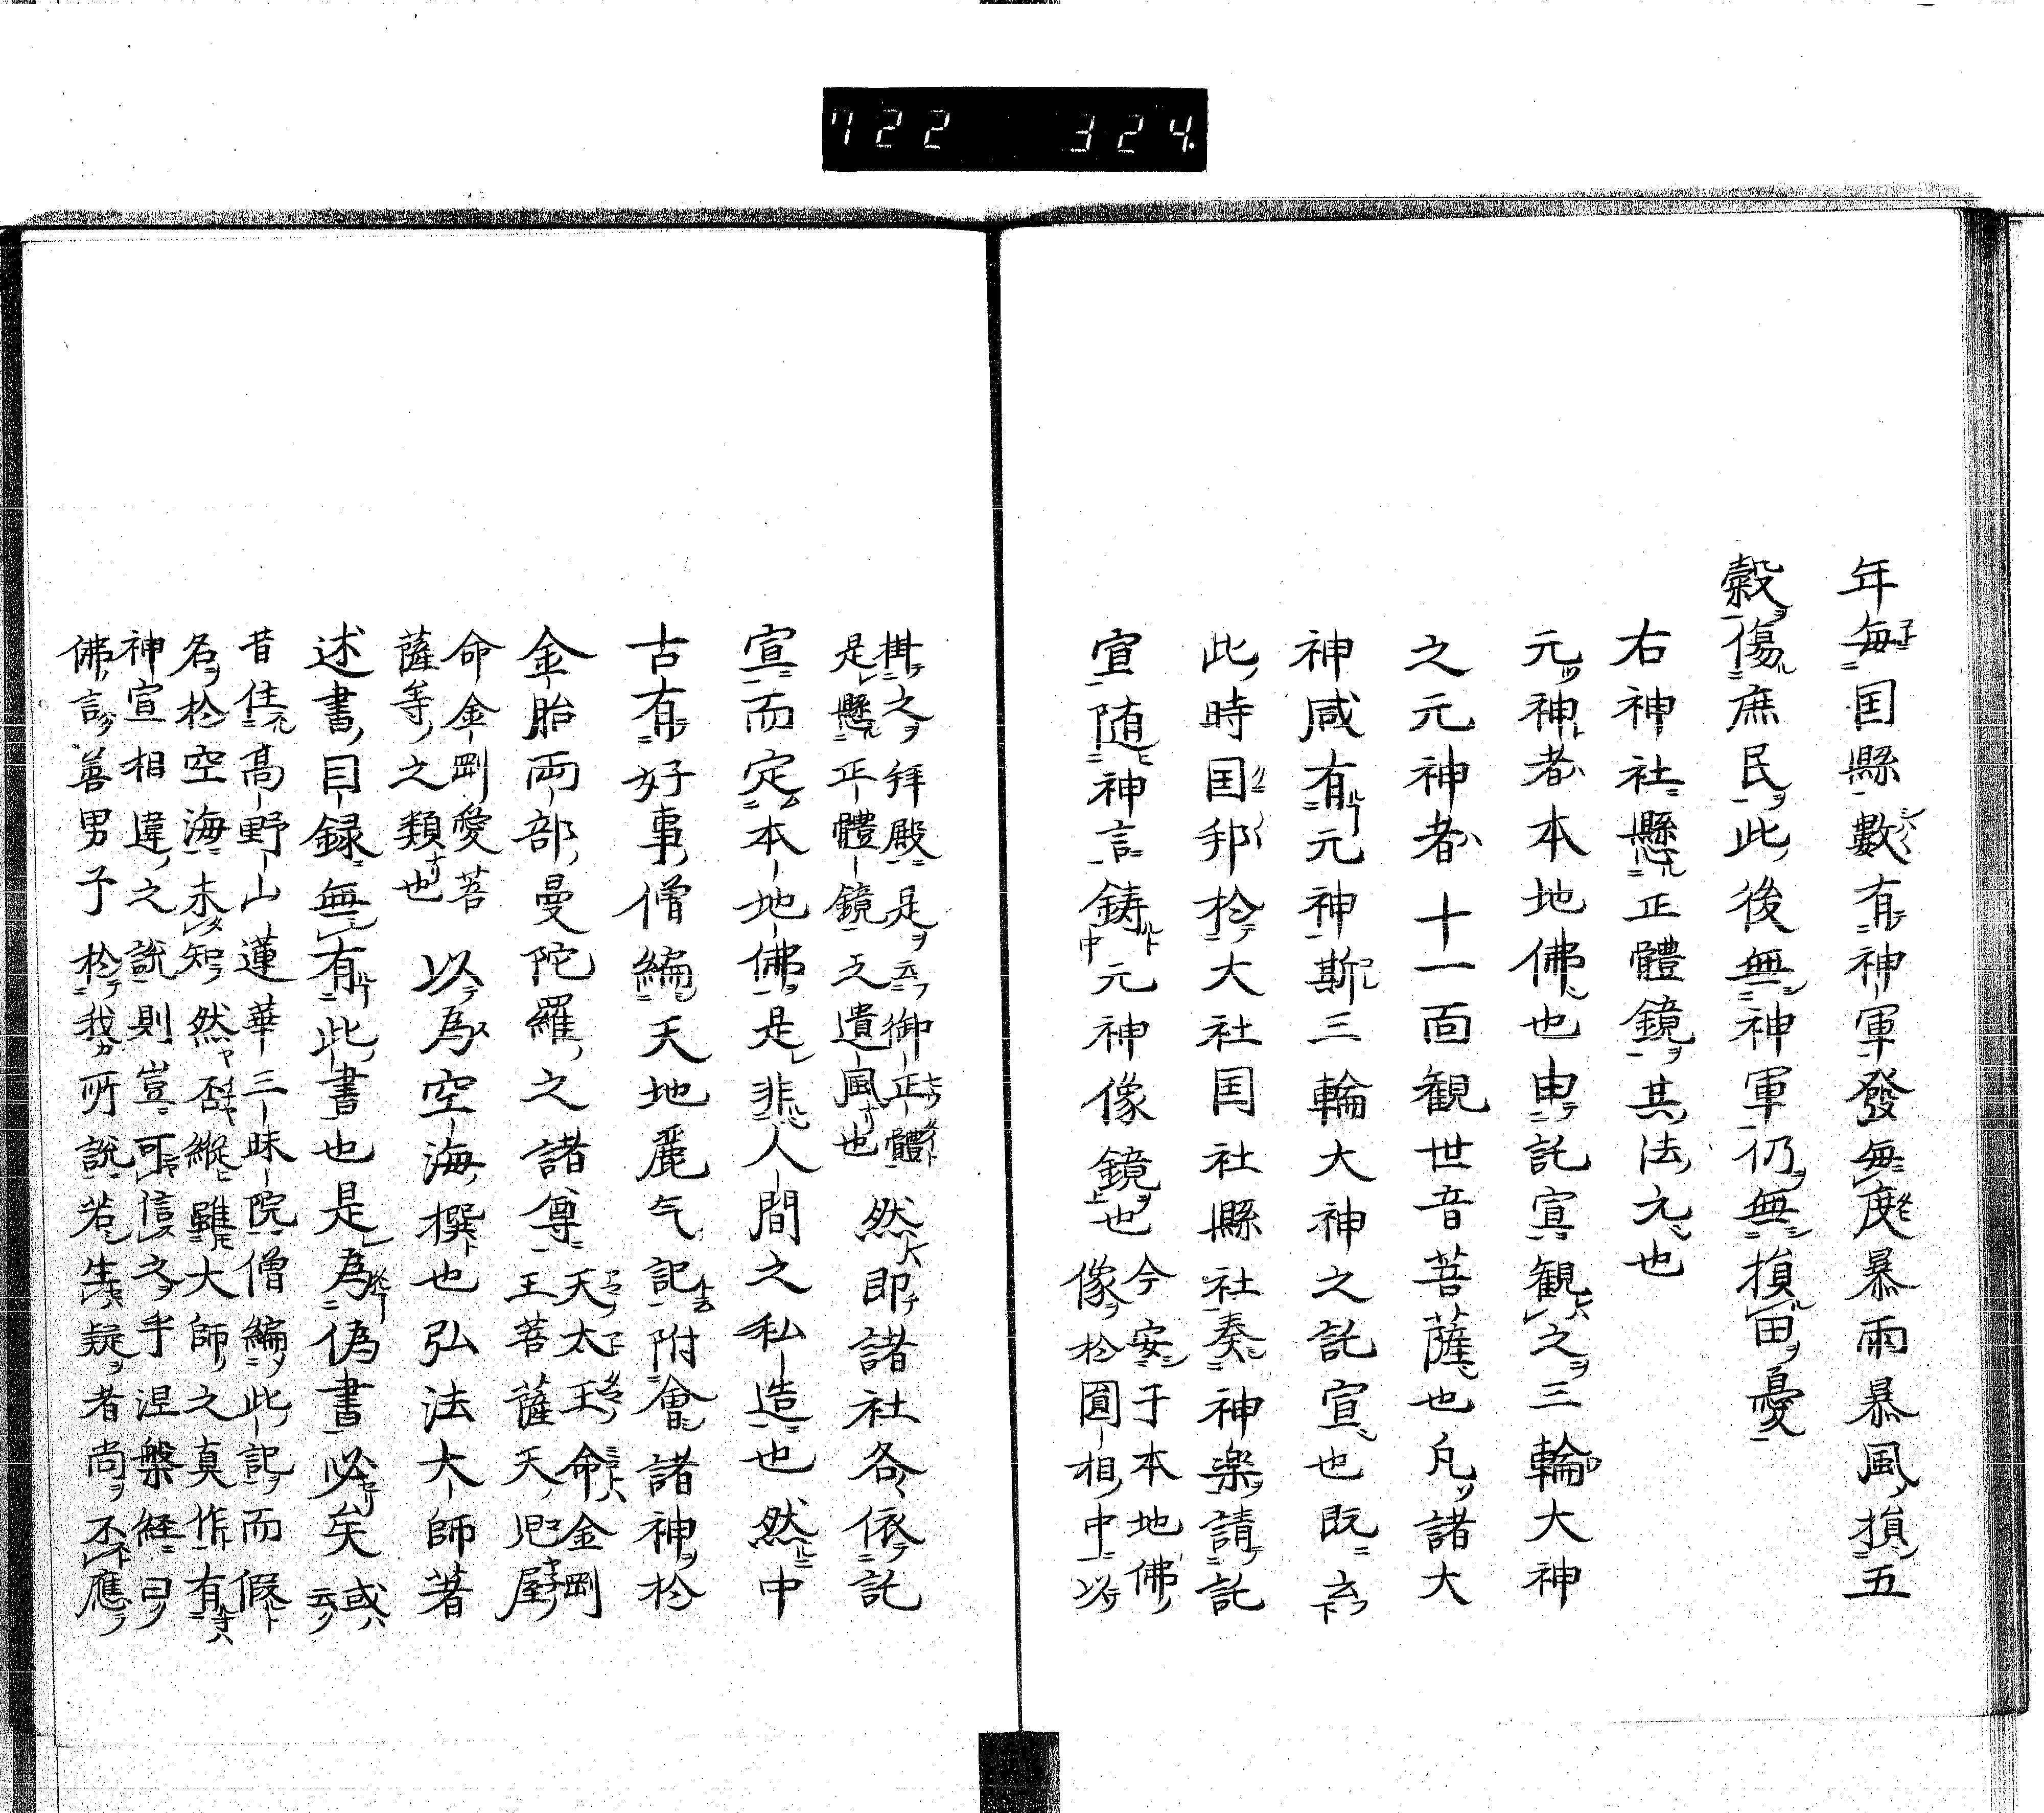 722 324
年毎国縣數有神軍發毎度暴雨暴風損五
糓傷庶民此後無神軍仍無損田憂
右神社懸正體鏡其法元也
元神者本地佛也申託宣観之三輪大神
之元神者十一面観世音菩薩也凡諸大
神咸有元神斯三輪大神之託宣也既云
此時国邦於大社国社縣社奏神楽請託
宣随神言鋳元神像鏡也
今安于本地佛
像於圓相中以
掛之拜殿是云御正體
是懸正體鏡之遺風也
然即諸社各依託
宣而定本地佛是非人間之私造也然中
古有好事僧編天地麗气記附會諸神於
金胎両部曼陀羅之諸尊
天太王命金剛
王菩薩天児屋
命金剛愛菩
薩等之類也
以為空海撰也弘法大師著
述書目録無有此書也是為偽書必矣
或
云
昔住高野山蓮華三昧院僧編此記而假
名於空海未知然否縦雖大師之真作有
神宣相違之説則豈可信之乎涅槃経曰
佛言善男子於我所説若生疑者尚不應